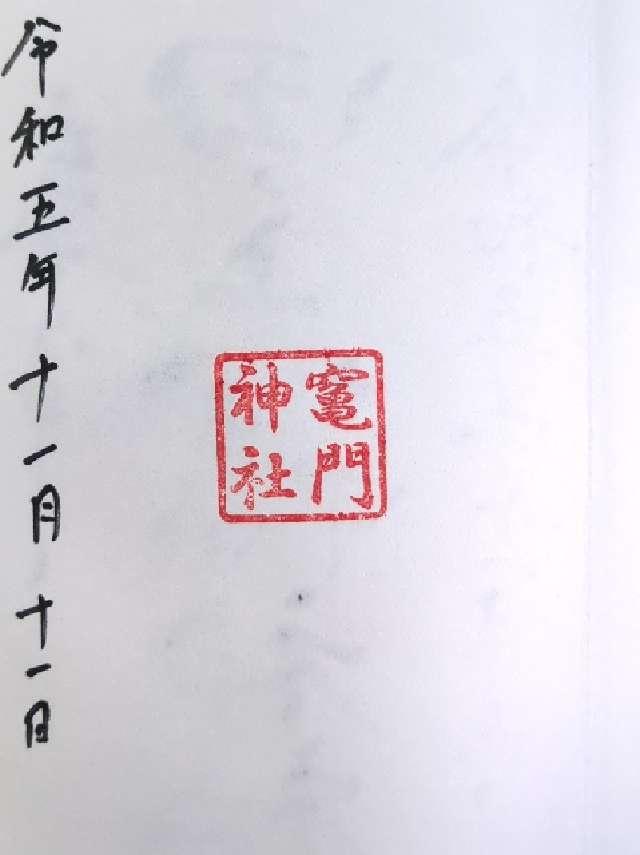 竈門
神社
令和五年十一月十一日